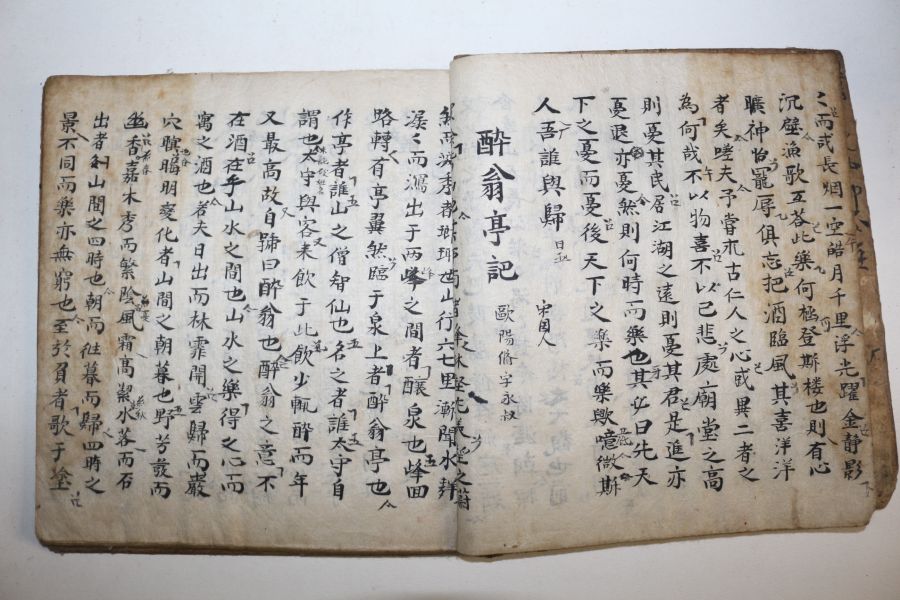 〻而或長烟一空皓月千里浮光躍金静影
沉璧漁歌互荅此樂何極登斯楼也則有心
曠神怡寵辱俱忘把酒臨風其喜洋洋
者矣嗟夫予嘗求古仁人之心或異二者之
為何哉不以物喜不以己悲處庙堂之高
則憂其民居江湖之遠則憂其君是進亦
憂退亦憂然則何時而樂也其必曰先天
下之憂而憂後天下之樂而樂歟噫微斯
人吾誰與歸
宋國人
醉翁亭記
歐陽脩字永叔
林壑尤美望之蔚
然而深秀者瑯琊也山行六七里漸聞水聲
潺〻而瀉出于两峰之間者釀泉也峰回
路轉有亭翼然臨于泉上者醉翁亭也
作亭者誰山之僧智仙也名之者誰太守自
謂也太守與客来飲于此飲少輒醉而年
又最高故自號曰醉翁也醉翁之意不
在酒在乎山水之間也山水之樂得之心而
寓之酒也若夫日出而林霏開雲歸而巖
穴暝晦明變化者山間之朝暮也野芳發而
幽香嘉木秀而繁陰風霜高潔水落而石
出者山間之四時也朝而往暮而歸四時之
景不同而樂亦無窮也至於負者歌于塗